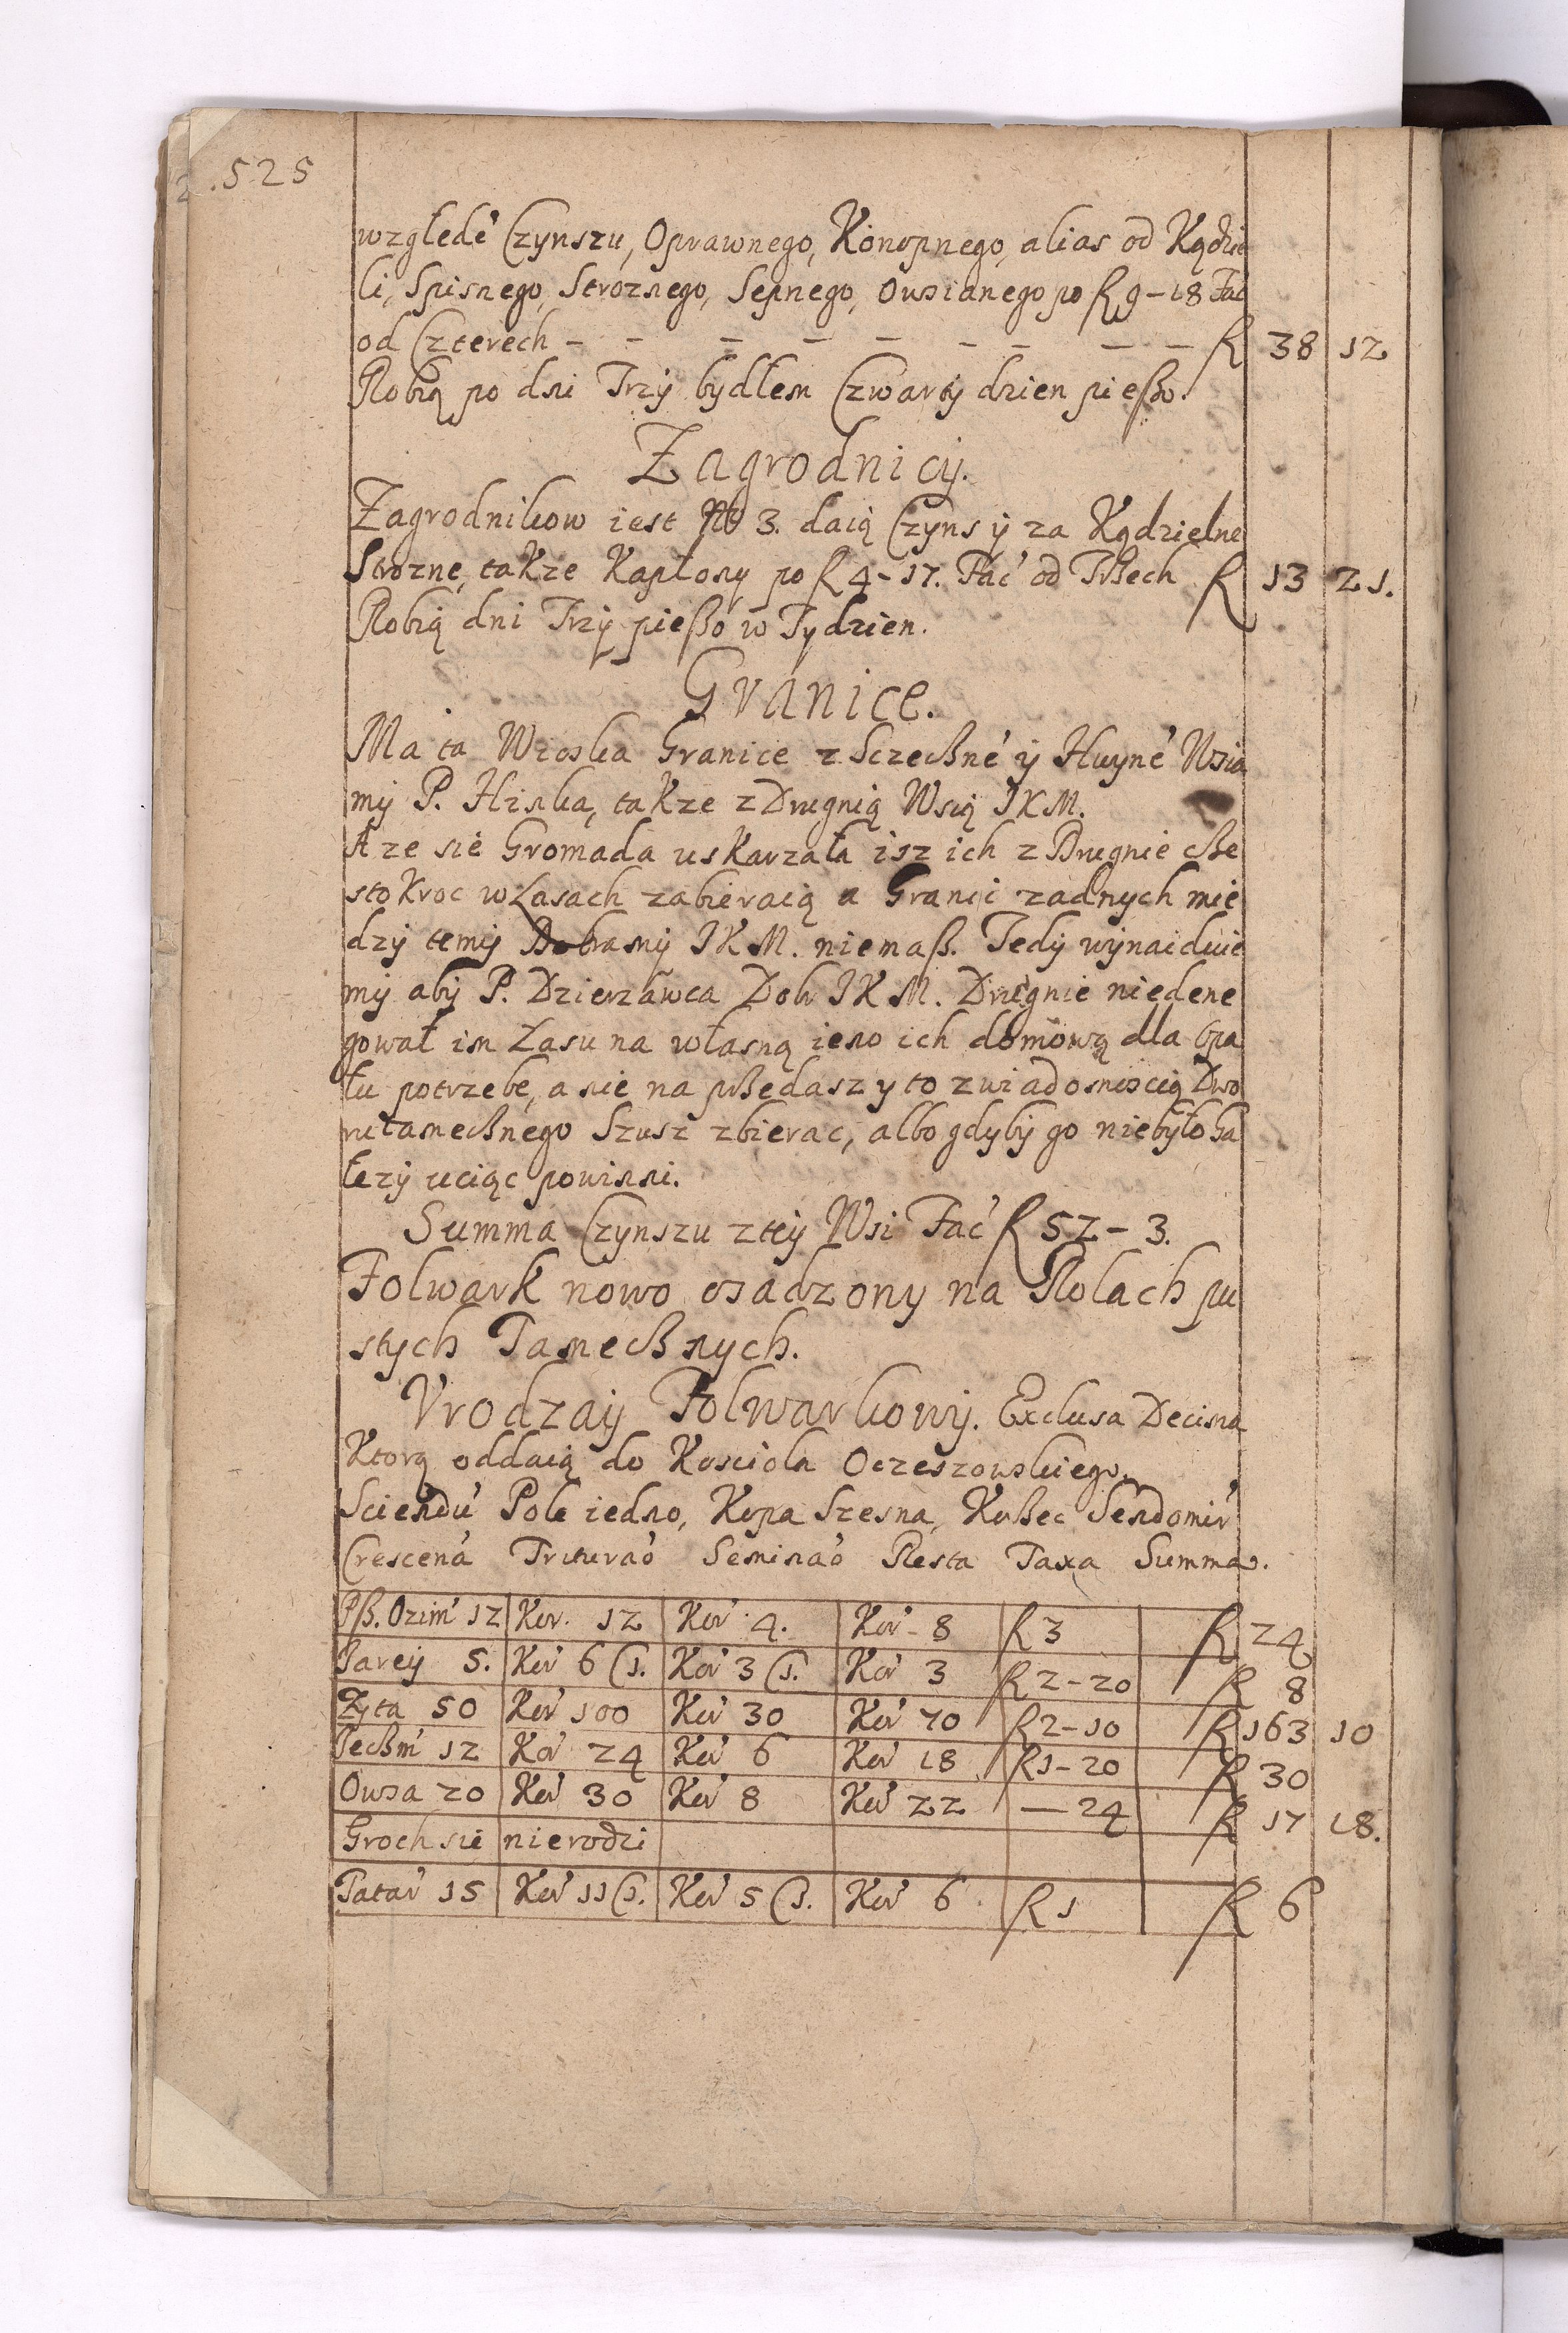 .525
względē Czynszu, Oprawnego, Konopnego, alias od Kądzie
li, Spisnego, Stroznego, Sepnego, Owsianego po R 9-18 Fać
od Czterech — — — — — — — — — R 38 12
Robią po dni Trzÿ bydłem Czwartÿ dzien pießo.
Zagrodnicÿ.
Zagrodnikow iest No 3. daią Czyns ÿ za Kądzielne
Strozne, takze Kapłony po R 4-17. Fać od Trßech R 13 21.
Robią dni Trzÿ pießo w Tydzien.
Granice.
Ma ta Wioska Granice z Sczecßné ÿ Huyné Wsia
mÿ P. Hinka, takze z Drugnią Wsią JKM.
A ze sie Gromada uskarzała isz ich z Drugnie cße
stokroc w Lasach zabieraią a Granic zadnych mie
dzÿ temÿ Dobramÿ JKM. niemaß. Tedÿ wÿnaiduie
mÿ abÿ P. Dzierzawca Dobr JKM. Drugnie niedene
gował im Lasu na własną ieno ich domową dla Opa
łu potrzebe, a nie na pßedasz y to z wiadomoscią Dwo
ru tamecßnego Szusz zbierac, albo gdybÿ go niebÿło Ga
łezÿ uciąc powinni.
Summa Czynszu z teÿ Wsi Fać R 52-3.
Folwark nowo osadzony na Rolach pu
stych Tamecßnych.
Vrodzaÿ Folwarkowÿ. Exclusa Decima
Ktorą oddaią do Kosciola Oczeszowskiego.
Sciendū Pole iedno, Kopa Szesna, Korßec Sendomir̄
Crescená Trituraó Seminaó Resta Taxa Summa.
Pß. Ozim 12 Kor. 12 Kor 4. Kor 8 R 3 R 24
Jareÿ 5. Kor 6 (1. Kor 3 (1. Kor 3 R 2-20 R 8
Zyta 50 Kor 100 Kor 30 Kor 70 R 2-10 R 163 10
Jecßm 12 Kor 24 Kor 6 Kor 18 R 1-20 R 30
Owsa 20 Kor 30 Kor 8 Kor 22 — 24 R 17 18.
Groch sie nierodzi
Tatar 15 Kor 11 (1. Kor 5 (1. Kor 6 R 1 R 6